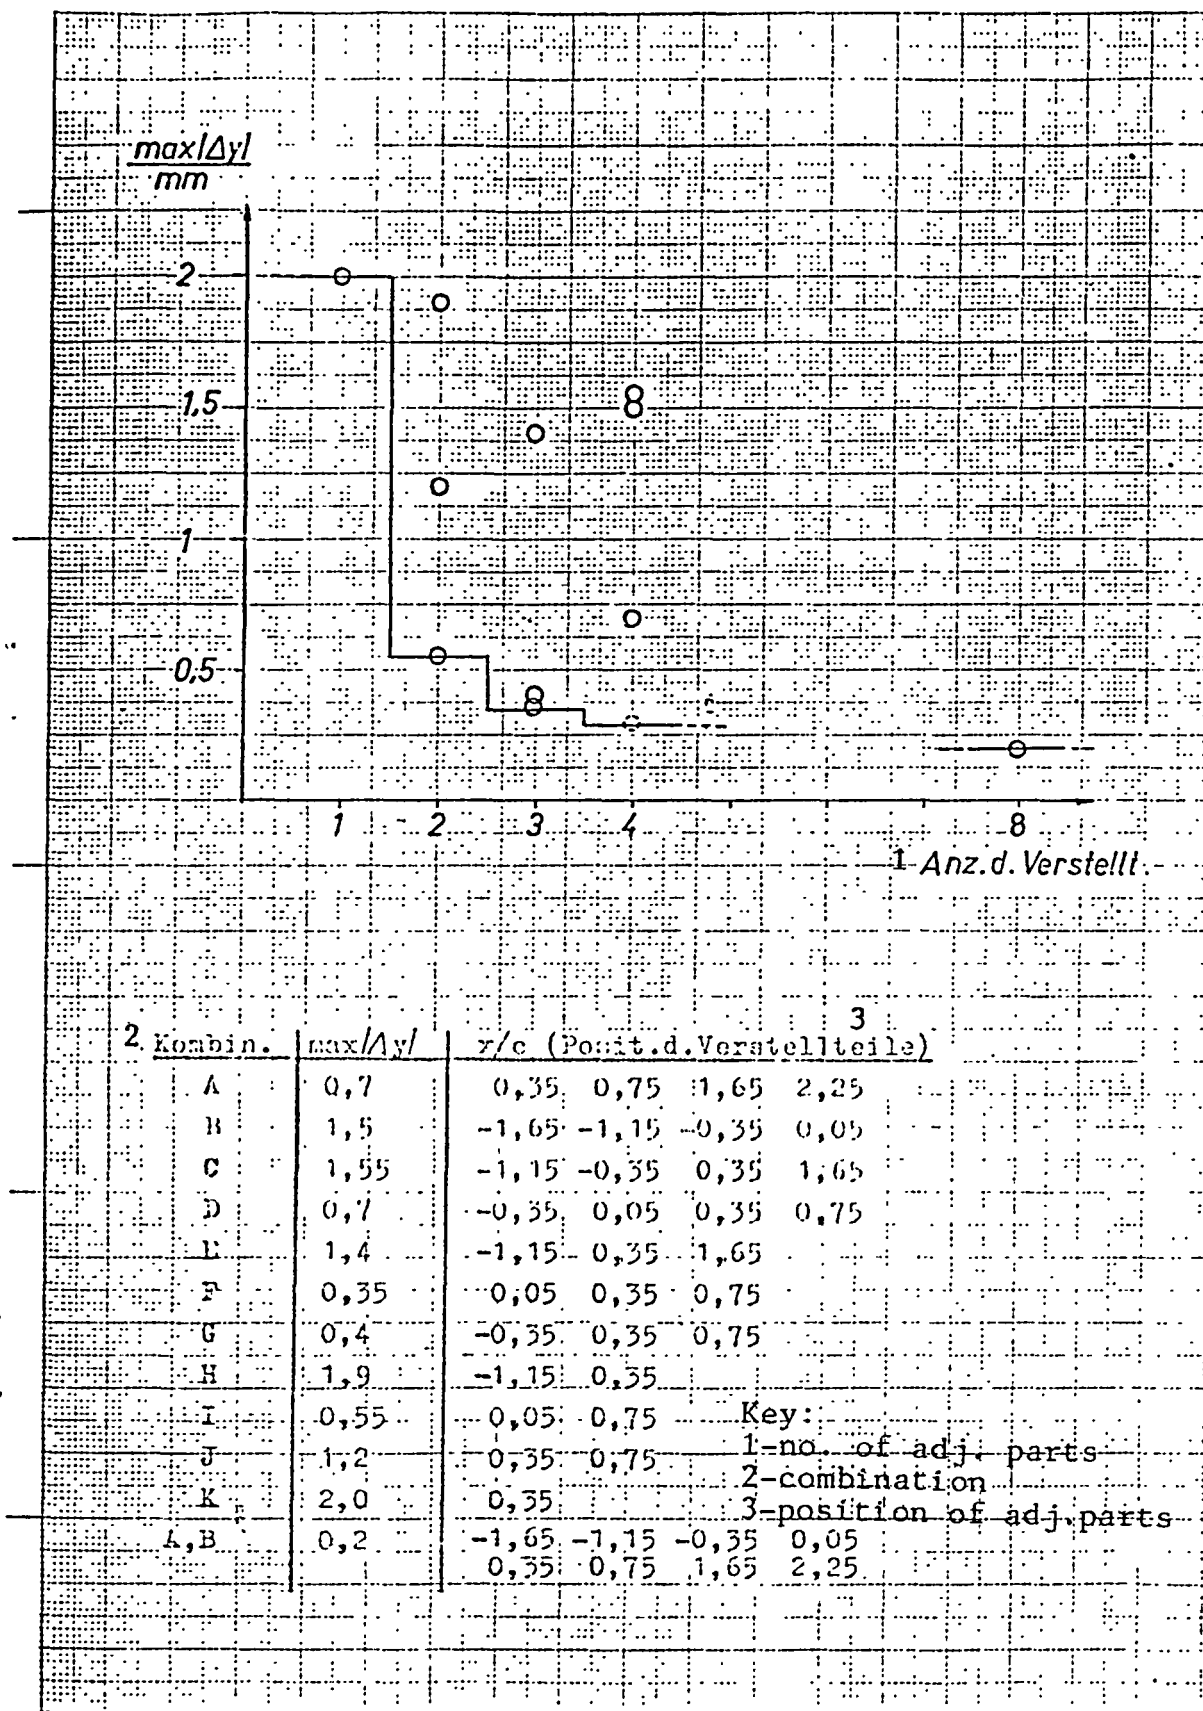 max|Δy|
mm
2
1,5
1
0,5
1 2 3 4 8
1 Anz.d.Verstellt.
3
2 Kombin. max|Δy| x/c (Posit.d.Verstellteile)
A 0,7 0,35 0,75 1,65 2,25
B 1,5 -1,65 -1,15 -0,35 0,05
C 1,55 -1,15 -0,35 0,35 1,65
D 0,7 -0,35 0,05 0,35 0,75
E 1,4 -1,15 0,35 1,65
F 0,35 0,05 0,35 0,75
G 0,4 -0,35 0,35 0,75
H 1,9 -1,15 0,35
I 0,55 0,05 0,75
J 1,2 0,35 0,75
K 2,0 0,35
A,B 0,2 -1,65 -1,15 -0,35 0,05
0,35 0,75 1,65 2,25
Key:
1-no. of adj. parts
2-combination
3-position of adj.parts